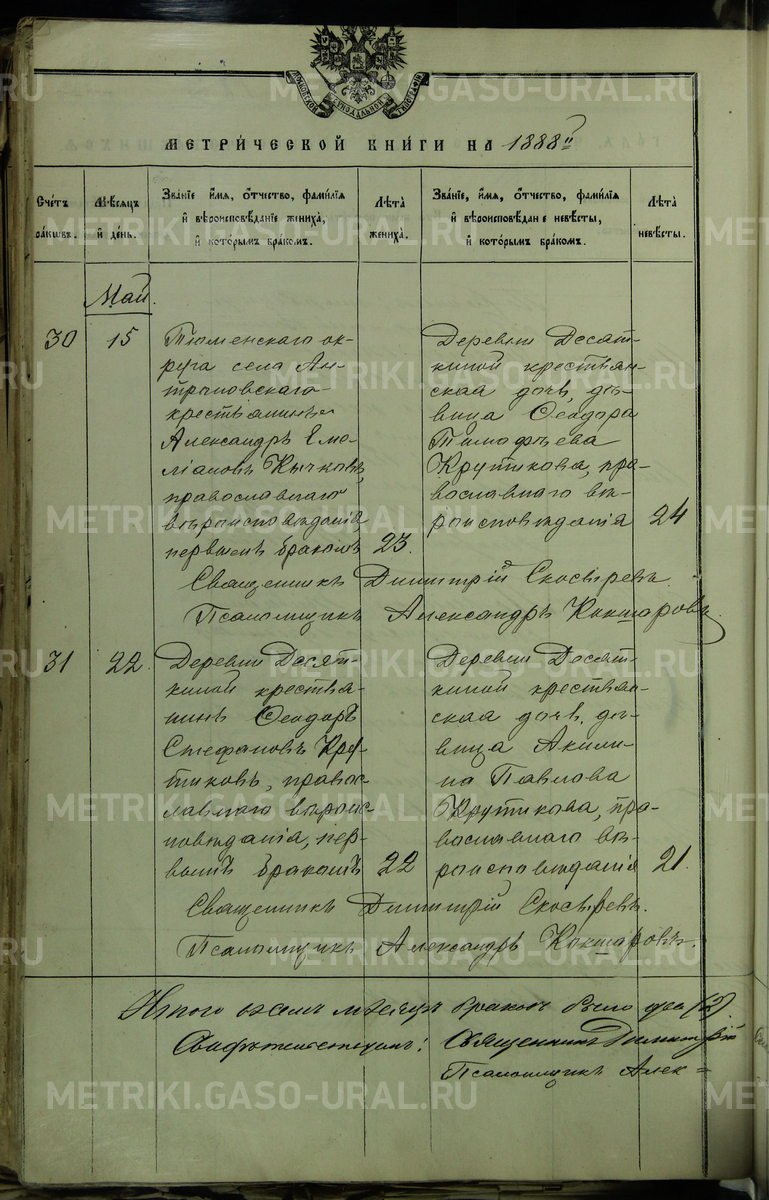 МЕТРИ́ЧЕСКОЙ КНИ́ГИ НА 1888
Сче́тъ бракѡвъ.
Мѣ́сяцъ и҆ де́нь.
Зва́нїе и҆́мя, ѻ҆́тчество, фами́лїя и҆ вѣроисповѣ́данїе жениха̀, и҆ кото́рымъ бра́комъ.
Лѣ́та жениха̀.
Зва́нїе, и҆́мя, ѻ҆́тчество, фами́лїя и҆ вѣроисповѣ́дан е невѣ́сты, и҆ кото́рымъ бра́комъ.
Лѣ́та невѣ́сты.
Май.
30
15
Тюменскаго ок-
руга села Ан-
трпиовскаго
крестьянинъ
Александръ Емо-
ліановъ Кычковъ,
православнаго
вѣроисповѣданія
первымъ бракомъ
23.
Деревни Десят-
киной крестьян-
ская дочь, дѣ-
вица Ѳеодора
Тимофѣева
Крутикова, пра-
вославнаго вѣ-
роисповѣданія
24
Священникъ Димитрій Скосыревъ.
Псаломщикъ Александръ Кокшаровъ
31
22
Деревни Десят-
киной крестья-
нинъ Ѳеодоръ
Стефановъ Кру-
тиковъ, правос-
лавнаго вѣроис-
повѣданія, пер-
вымъ бракомъ
22
Деревни Десят-
киной крестьян-
ская дочь, дѣ-
вица Акили-
на Павлова
Крутикова, пра-
вославнаго вѣ-
роисповѣданія
21.
Священникъ Димитрій Скосыревъ.
Псаломщикъ Александръ Кокшаровъ.
Итого въ маѣ мѣсяцѣ браковъ было два (2).
Свидѣтельствуемъ: Священникъ Димитрій
Псаломщикъ Алек=
METRIKI.GASO-URAL.RU